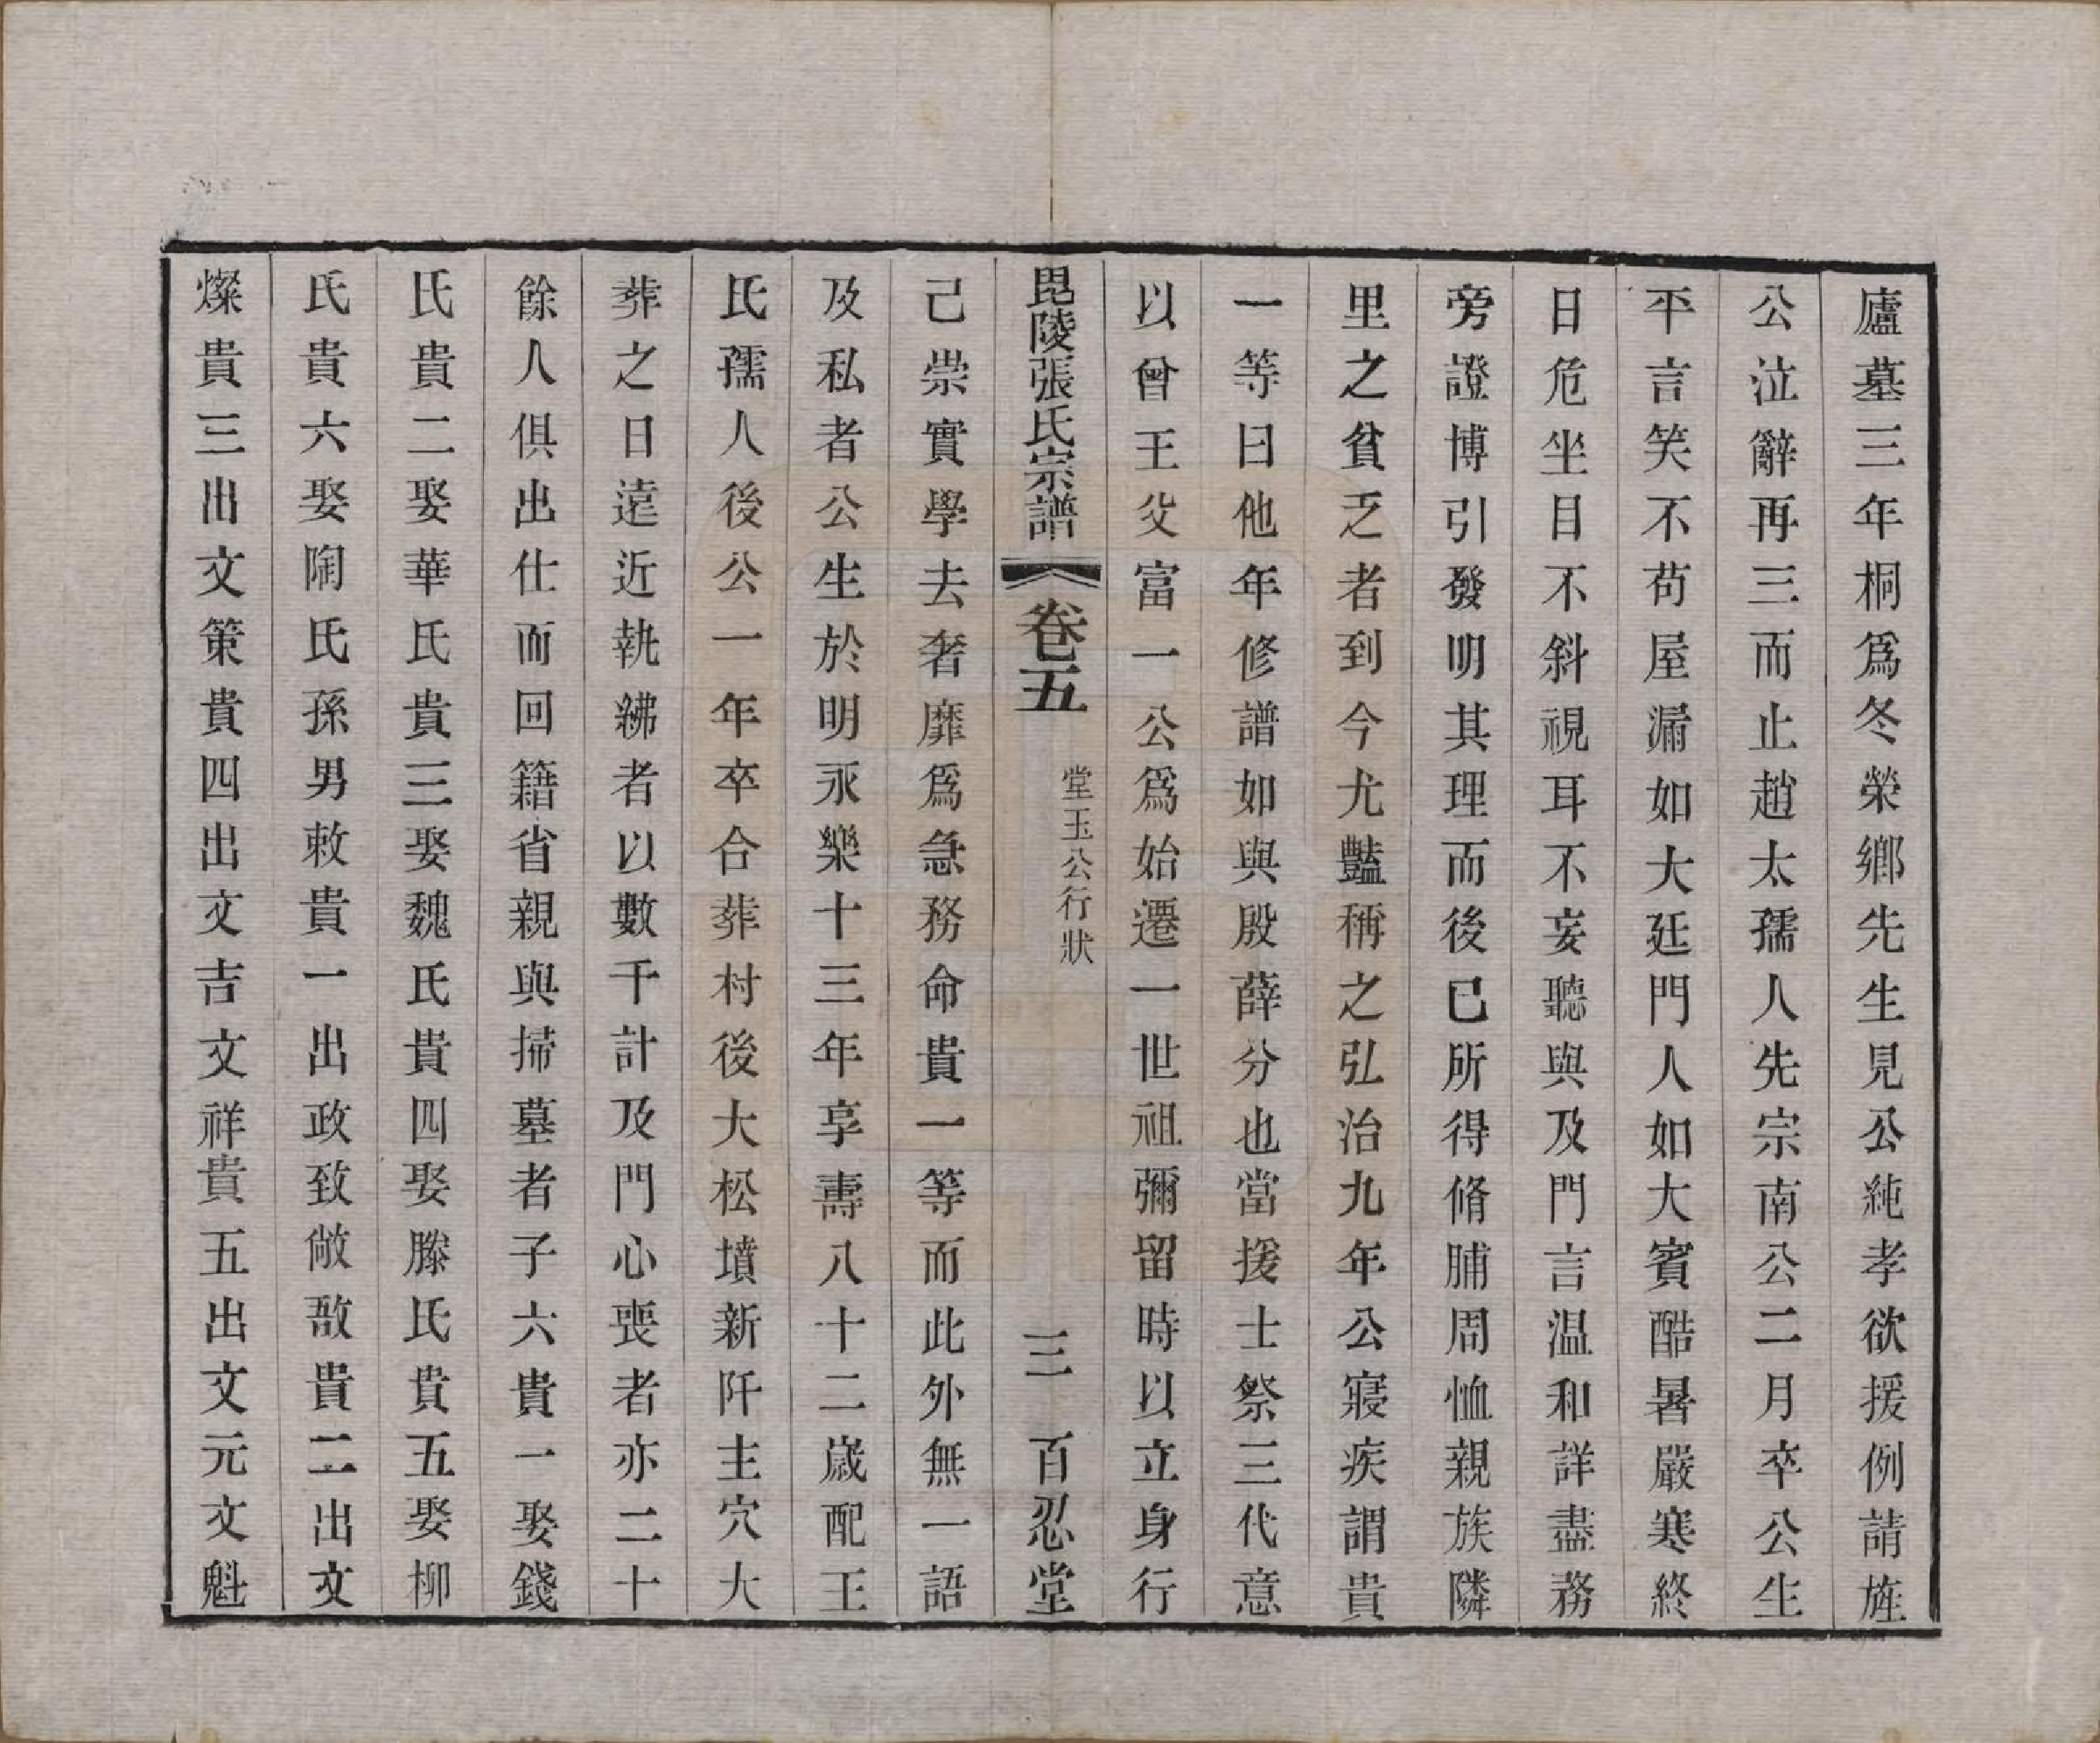 廬墓三年桐爲冬榮鄉先生見公純孝欲援例請旌
公泣辭再三而止趙太孺人先宗南公二月卒公生
平言笑不苟屋漏如大廷門人如大賓酷暑嚴寒終
日危坐目不斜視耳不妄聽與及門言温和詳盡務
旁證博引發明其理而後已所得脩脯周恤親族隣
里之貧乏者到今尤豔稱之弘治九年公寢疾謂貴
一等曰他年修譜如與殷薛分也當援士祭三代意
以曾王父富一公爲始遷一世祖彌留時以立身行
毘陵張氏宗譜 卷五 堂玉公行狀 三 百忍堂
己崇實學去奢靡爲急務命貴一等而此外無一語
及私者公生於明永樂十三年享壽八十二歲配王
氏孺人後公一年卒合葬村後大松墳新阡主穴大
葬之日遠近執紼者以數千計及門心喪者亦二十
餘人俱出仕而回籍省親與掃墓者子六貴一娶錢
氏貴二娶華氏貴三娶魏氏貴四娶滕氏貴五娶柳
氏貴六娶陶氏孫男敕貴一出政致敞敔貴二出文
燦貴三出文策貴四出文吉文祥貴五出文元文魁